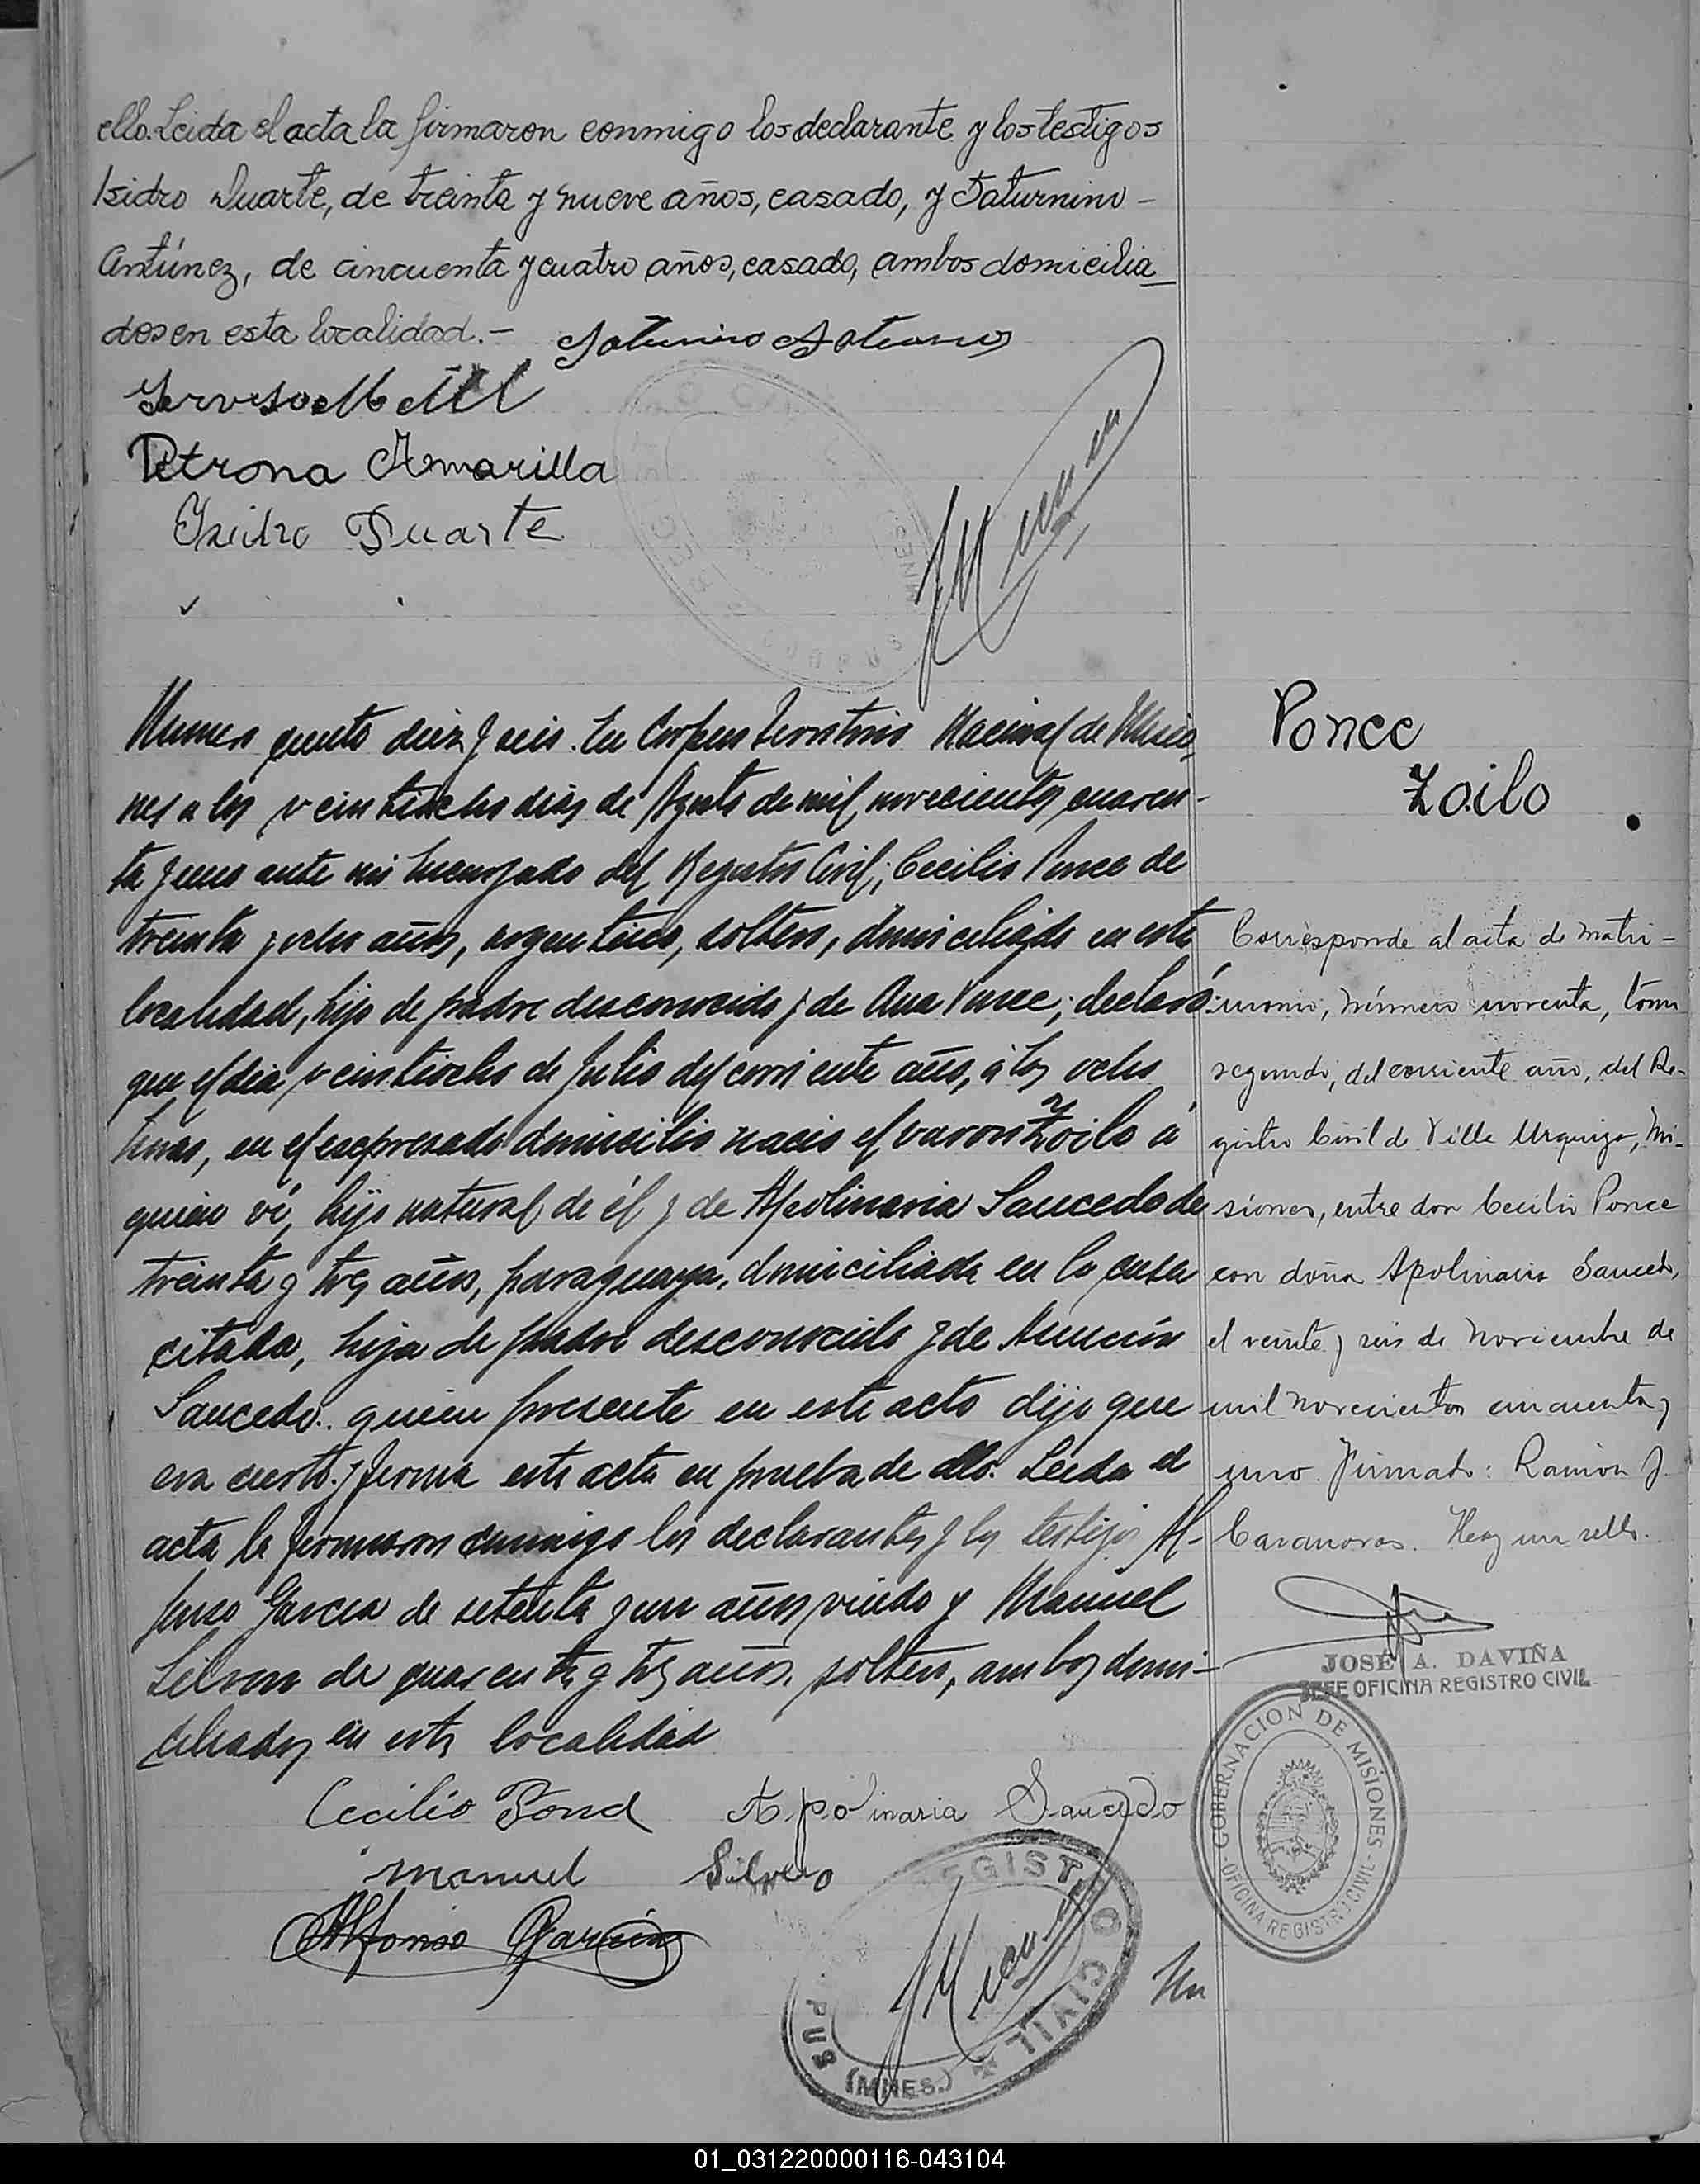 ello. Leida el acta la firmaron conmigo los declarante y los testigos
Isidro Duarte, de treinta y nueve años, casado, y Saturnino -
Antúnez, de cincuenta y cuatro años, casado, ambos domicilia
dos en esta localidad. -
Petrona Amarilla
Isidro Duarte
Numero ciento diez y seis. En Corpus Territorio Nacional de Misio
nes a los veintiocho dias de Agosto de mil novecientos cuaren-
ta y uno ante mi Encargado del Registro Civil; Cecilio Ponce de
treinta y ocho años, argentino, soltero, domiciliado en esta
localidad, hijo de padre desconocido y de Ana Ponce; declaró:
que el dia veintiocho de Julio del corriente año, á las ocho
horas, en el expresado domicilio nacio el varon Zoilo á
quien ví, hijo natural de él y de Apolinaria Saucedo de
treinta y tres años, paraguaya, domiciliada en la casa
citada, hija de padre desconocido y de Asunción
Saucedo. quien presente en este acto dijo que
era cierto y firma este acta en prueba de ello. Leida el
acta la firmaron conmigo los declarantes y los testigos Al-
fonso Garcia de setenta y un años viudo y Manuel
de cuarenta y tres años, soltero, ambos domi-
ciliados en esta localidad
Cecilio Apolinaria Saucedo
Manuel Silvero
Alfonso Garcia
REGISTRO CIVIL
PUS (MNES.)
Ponce
Zoilo
Corresponde al acta de matri-
monio, número noventa, tomo
segundo, del corriente año, del Re-
gistro Civil de Villa Urquiza, Mi-
siones, entre don Cecilio Ponce
con doña Apolinaria Saucedo,
el veinte y seis de Noviembre de
mil novecientos cincuenta y
uno. Firmado: Ramon J.
Casanovas. Hay un sello.
JOSÉ A. DAVIÑA
JEFE OFICINA REGISTRO CIVIL
GOBERNACION DE MISIONES
- OFICINA REGISTRO CIVIL -
01_031220000116-043104